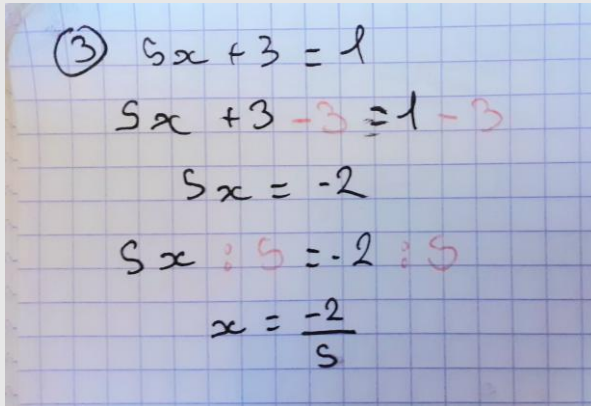 ③ 5x + 3 = 1
5x + 3 - 3 = 1 - 3
5x = -2
5x : 5 = -2 : 5
x = -2/5